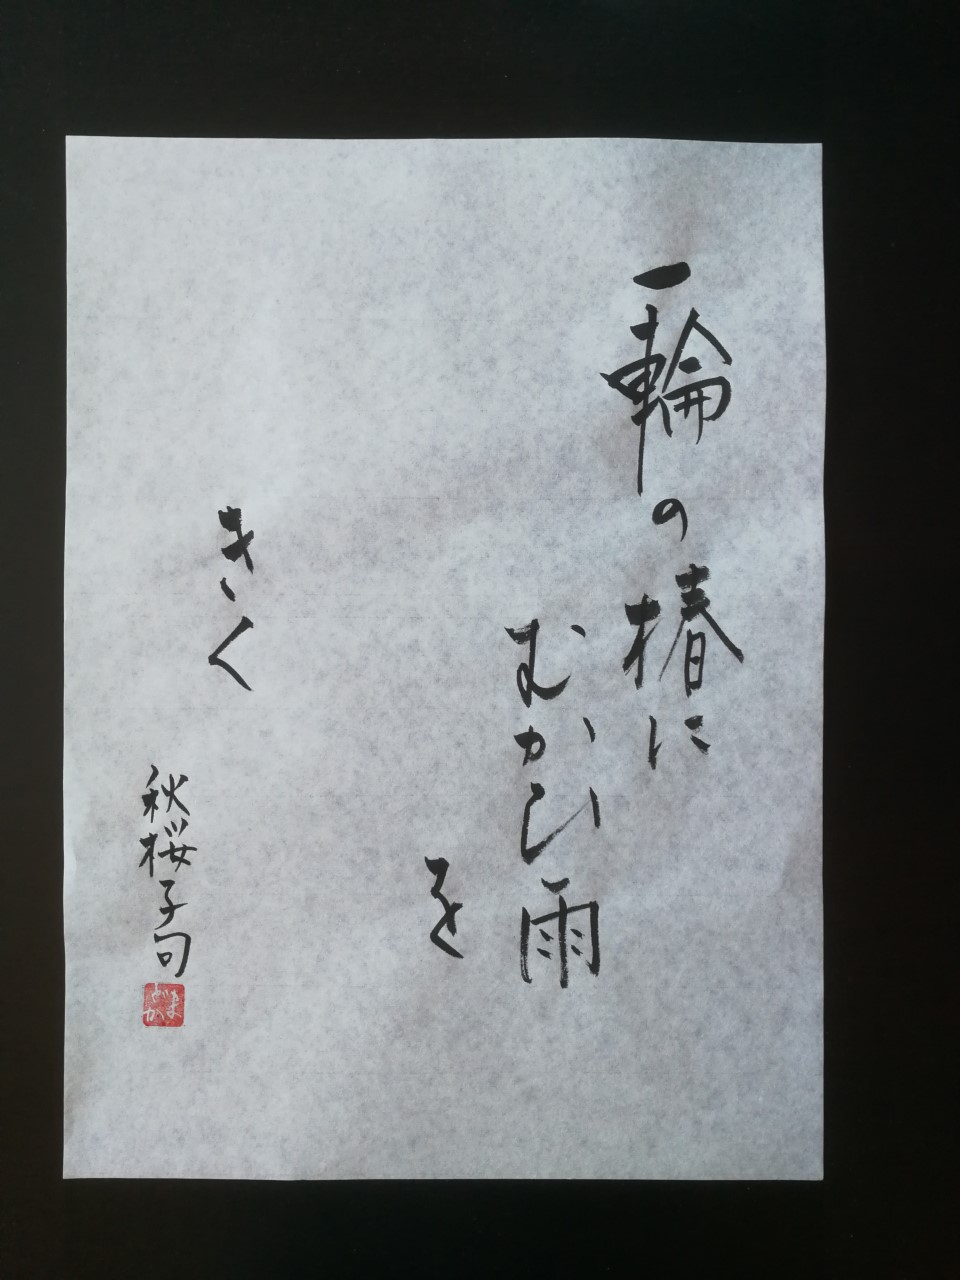 一輪の椿に
むかひ雨
を
きく
秋桜子句
まどか